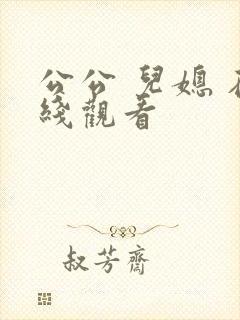 公公 兒媳 在
綫觀看
叔芳齋